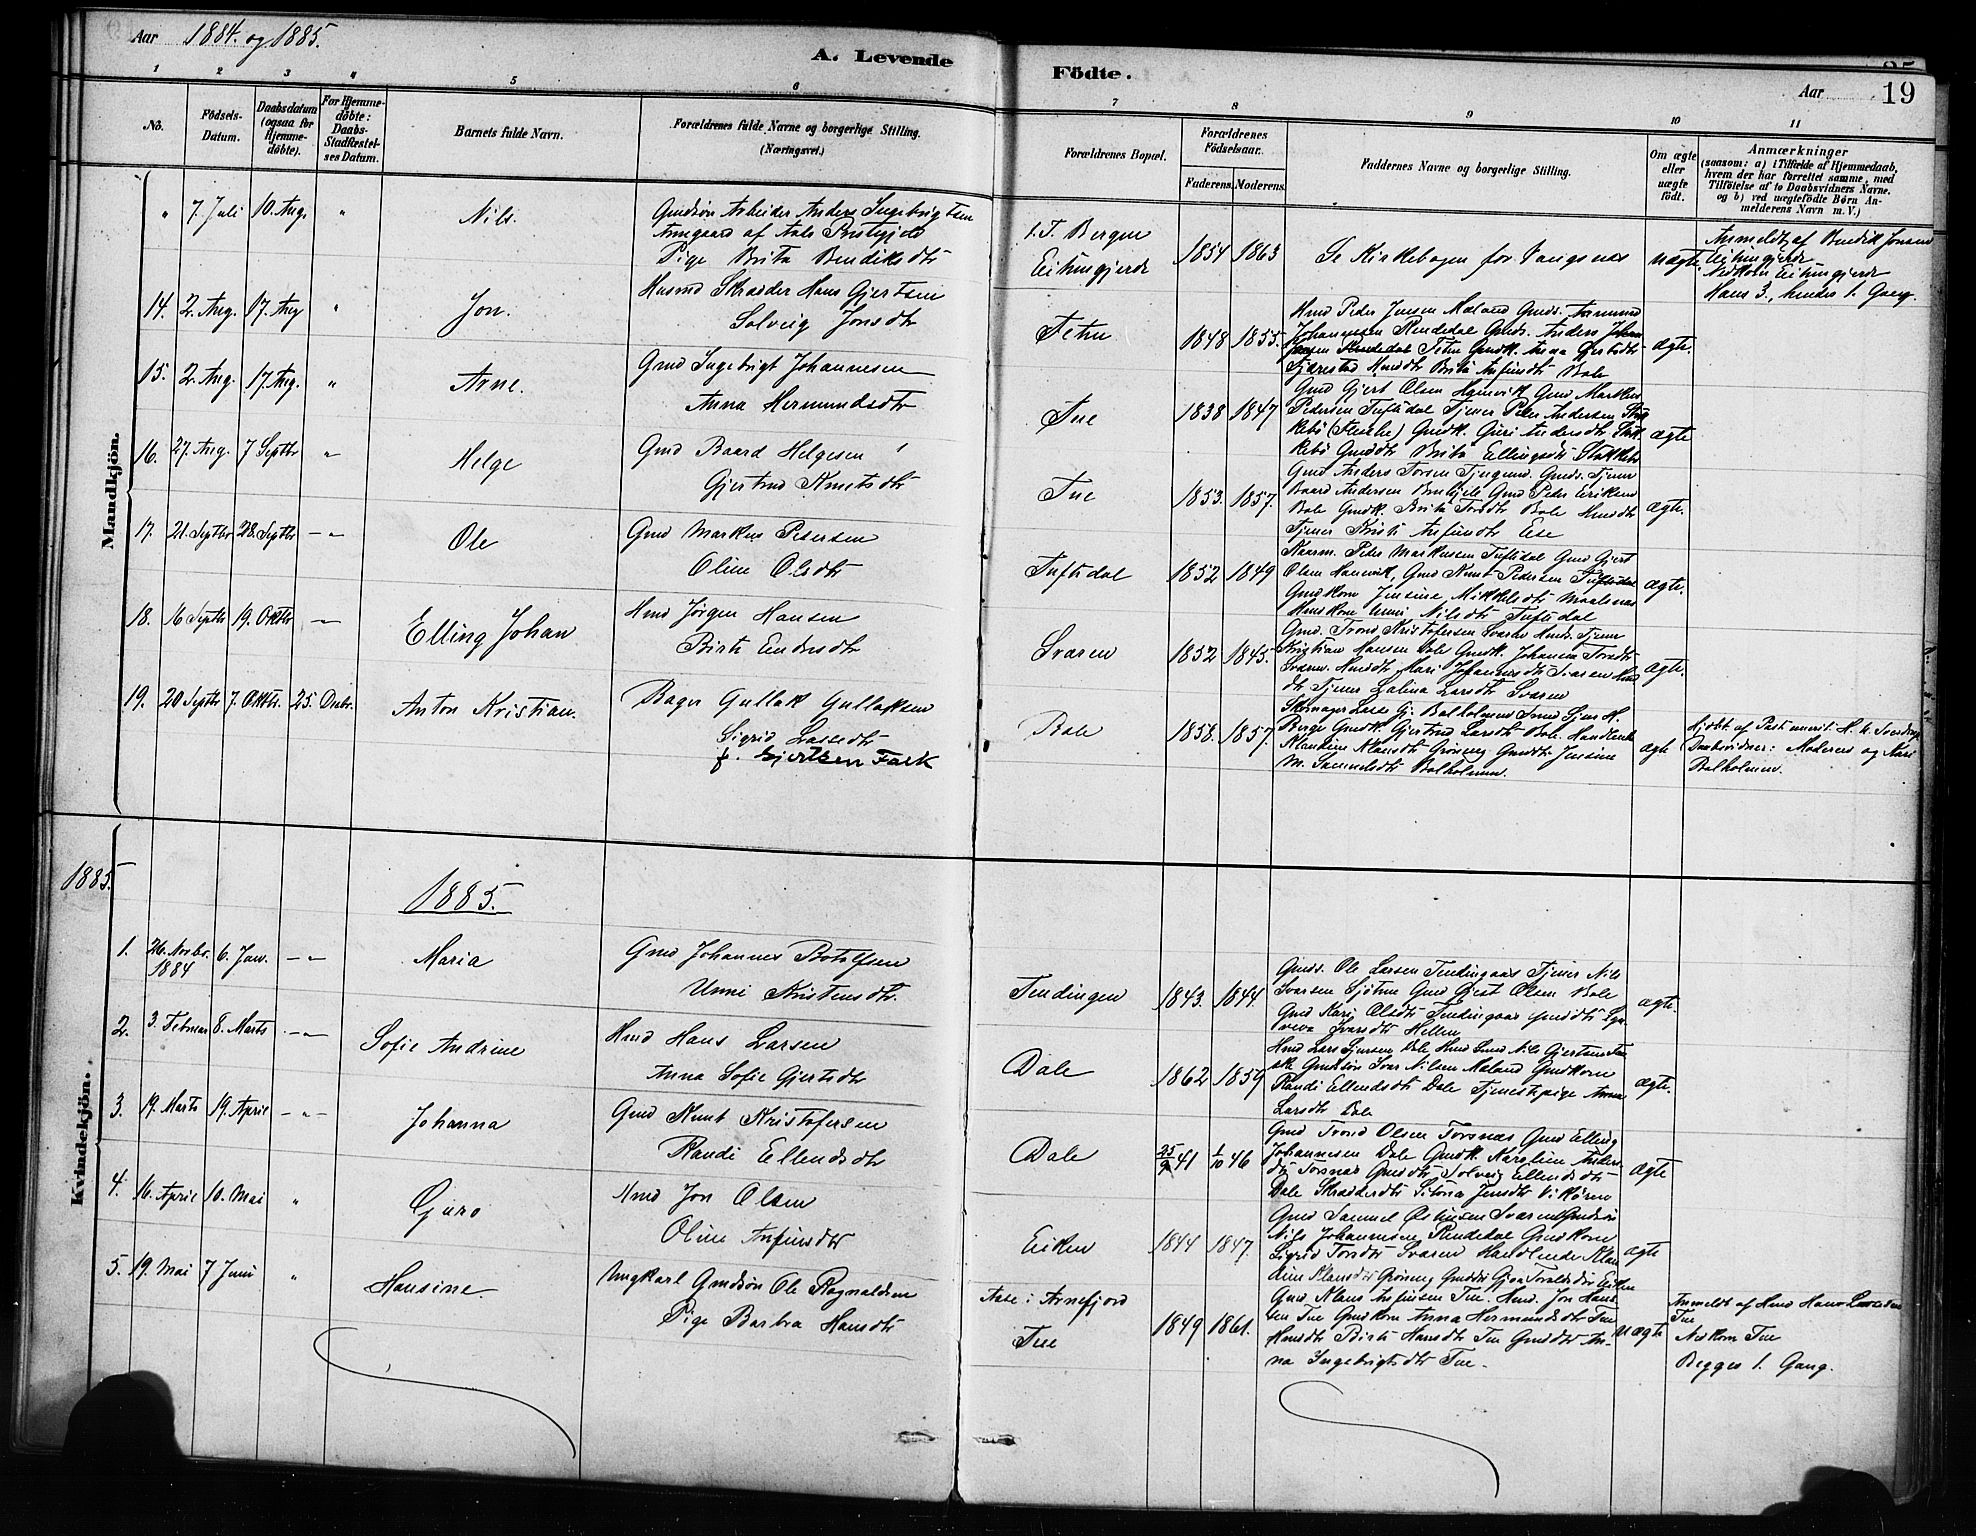 Aar 1884. og 1885.
A. Levende Födte.
Aar 19
1 2 3 4 5 6 7 8 9 10 11
No.
Födsels-Datum.
Daabsdatum (ogsaa for Hjemme-döbte).
For Hjemme-döbte: Daabs-Stadfæstel-ses Datum.
Barnets fulde Navn.
Forældrenes fulde Navne og borgerlige Stilling.
(Næringsvei.)
Forældrenes Bopæl.
Forældrenes Födselsaar.
Faderens. Moderens.
Faddernes Navne og borgerlige Stilling.
Om ægte eller uægte födt.
Anmærkninger
(saasom: a) i Tilfælde af Hjemmedaab,
hvem der har forrettet samme, med
Tilföielse af to Daabsvidners Navne.
og b) ved uægtefödte Börn An-
melderens Navn m. V.)
Mandkjön.
" 7. Juli 10. Aug. " Nils.
Gmdsön Arbeider Anders Ingebrigtsen
af Aals Prstgjeld
Pige Brita Bendiksdtr
Bergen
Eitungjerde
1854 1863
Se Kirkebogen for Vangsnæs
uægte
Anmeldt af Bendik Jonsen
Eitungjerde
Nedkom Eitungjerde
Hans 3., hendes 1. Gang.
14. 2. Aug. 17. Aug " Jon.
Husmd Skrædder Hans Gjertsen
Solveig Jonsdtr
1848 1855.
Hmd Peder Jensen Maland Gmds.
Johannesen Rendedal Gmds. Anders Johan
Gmdk. Anna Gjertsdtr
Hmdtr Brita Anfindtr Bale
ægte.
15. 2. Aug. 17. Aug. " Arne.
Gmd Ingebrigt Johannesen
Anna Hermundsdtr
Tue
1838 1847
Gmd Gjert Olsen Hamvik Gmd Markus
Pedersen Tuftedal Tjener Peder Andersen
Gmdk. Guri Andersdtr
Gmddtr Brita Ellingsdtr
ægte
16. 27. Aug. 7 Septbr " Helge
Gmd Baard Helgesen
Gjertrud Knutsdtr
Tue
1853. 1857.
Gmd Anders Torsen Gmds. Tjener
Baard Andersen Gmd Peder Eriksen
Bale Gmdk. Brita Torsdtr Bale Hmddtr
Tjener Kristi Anfindtr Ese
ægte.
17. 21. Septbr 28. Septbr — " Ole
Gmd Markus Pedersen
Oline Olsdtr
Tuftedal
1852 1849
Kaarm. Peder Markusen Tuftedal Gmd Gjert
Olsen Hamvik, Gmd Knut Pedersen Tuftedal
Gmdkone Jensine Mikkelsdtr Maalsnæs
Nilsdtr Tuftedal
ægte.
18. 16 Septbr 19. Oktbr — Elling Johan
Hmd Jørgen Hansen
Birte Endredtr
Svaren
1852 1845.
Gmd. Trond Kristofersen Svaren Hmds. Tjener
Kristian Hansen Dale Gmdk. Johanna Torsdtr
Svaren. Hmddtr Mari Johannesdtr Svaren Hmd
dtr Tjener Larsdtr Svaren
ægte.
19. 20 Septbr 7. Oktbr. 25. Decbr. Anton Kristian.
Bager Gullak Gullaksen
Sigrid Lassedtr
f. Gjertsen Falk
Bale
1858. 1857.
Skomager Lasse Gj. Balholmen
Berge Gmdk. Gjertrud Larsdtr Bale. Handlende
Klaudine Klausdtr Grøneng Gmddtr Jensine
M. Samuelsdtr Balholmen.
ægte
Hjdøbt af Past. emerit. H. U. Sverdrup
Daabsvidner: Moderen og Kari
Balholmen.
1885. 1885.
Kvindekjön.
1. 26. Novbr. 1884 6. Jan. — " Maria
Gmd Johannes Botolfsen
Unni Kristensdtr.
Tendingen
1843. 1844.
Gmds. Ole Larsen Tendingaas Tjener Nils
Ivarsen Sjøtun Gmd Gjert Olsen Bale
Gmd Kari Olsdtr Tendingaas Gmddtr Syn-
neva Ivarsdtr Hellen
ægte.
2. 3. Februar 8. Marts — " Sofie Andrine
Hmd Hans Larsen
Anna Sofie Gjertsdtr
Dale
1862 1859
Hmd Lars Dale Hmd Nils Gjertsen
Gmdsön Ivar Nilsen Maland Gmdkone
Randi Ellendsdtr Dale Tjenestepige Anna
Larsdtr Dale
ægte.
3. 19. Marts 19. April — " Johanna
Gmd Knut Kristofersen
Randi Ellendsdtr
Dale
25/9 41 1/10 46
Gmd Trond Olsen Torsnæs Gmd Elling
Johannesen Dale Gmdk. Karoline Anders-
dtr Torsnæs Gmddtr Solveig Ellendsdtr
Dale Skrædderdtr Jensdtr Vikøren
ægte
4. 16. April 10. Mai " Guro
Hmd Jon Olsen
Oline Anfindtr
Eiken
1844 1847.
Gmd Samuel Svaren Gmdsön
Nils Johannesen Rendedal Gmdkone
Sigrid Torsdtr Svaren Handlende Klau
dine Klausdtr Grøneng Gmddtr Eiken
ægte
5. 19. Mai 7 Juni " Hansine
Ungkarl Gmdsön Ole Ragnaldsen
Pige Barbra Hansdtr
Aase i Arnefjord
Tue
1849 1861.
Gmd Klaus Anfinsen Tue. Hmd. Jon Hans
sen Tue Gmdkone Anna Hermundsdtr Tue
Hmddtr Birte Hansdtr Tue Gmddtr An-
na Ingebrigtsdtr Tue.
Uægte
Anmeldt af Hmd Hans
Tue
Nedkom Tue
Begges 1. Gang.